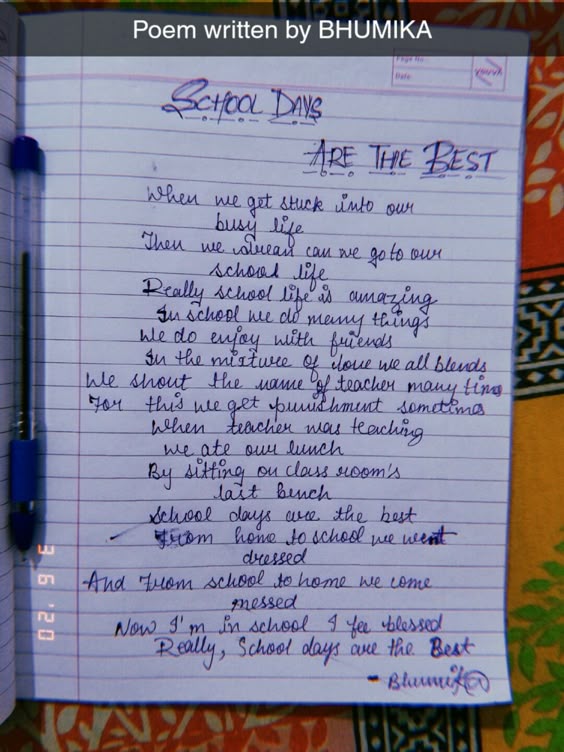 Poem written by BHUMIKA
Page No.
Date
YOUVA
SCHOOL DAYS
ARE THE BEST
When we get stuck into our
busy life
Then we dream can we go to our
school life
Really school life is amazing
In school we do many things
We do enjoy with friends
In the mixture of love we all blends
We shout the name of teacher many time
For this we get punishment sometimes
When teacher was teaching
we ate our lunch
By sitting on class room's
last bench
School days are the best
From home to school we went
dressed
And from school to home we come
messed
Now I'm in school I fee blessed
Really, School days are the Best
- Bhumika
3 6 '20